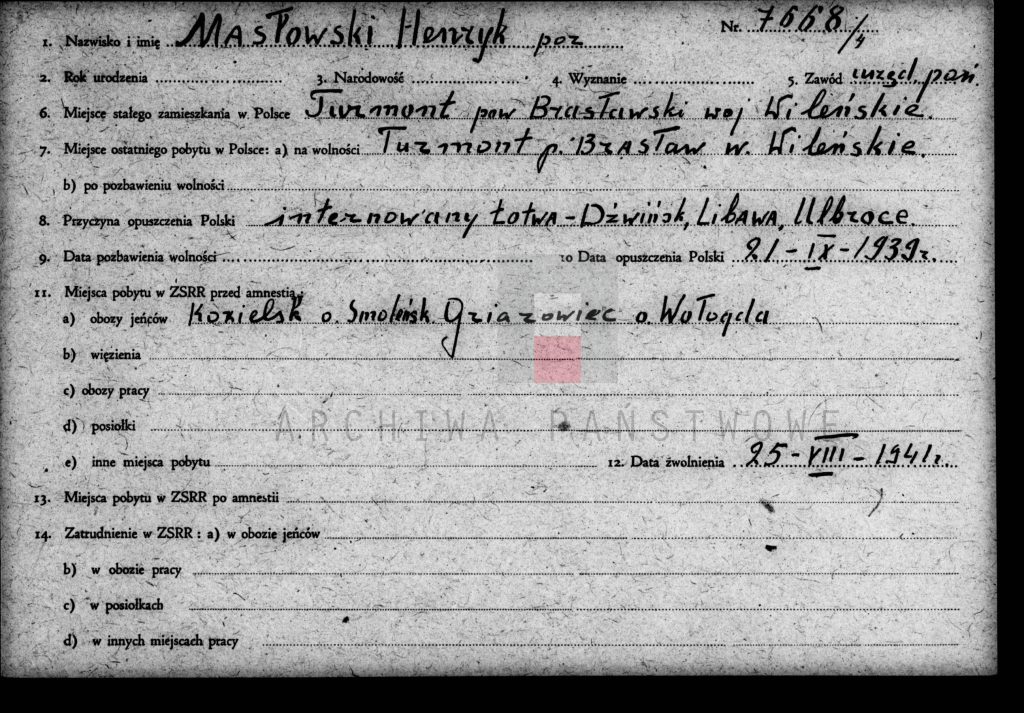 1. Nazwisko i imię Masłowski Henryk por Nr. 7668/4
2. Rok urodzenia 3. Narodowość 4. Wyznanie 5. Zawód urzęd pań.
6. Miejsce stałego zamieszkania w Polsce Turmont pow Brasławski woj Wileńskie.
7. Miejsce ostatniego pobytu w Polsce: a) na wolności Turmont p. Brasław w. Wileńskie.
b) po pozbawieniu wolności
8. Przyczyna opuszczenia Polski internowany Łotwa - Dźwińsk, Libawa, Ulbroce
9. Data pozbawienia wolności 10 Data opuszczenia Polski 21 - IX - 1939 r.
11. Miejsca pobytu w ZSRR przed amnestią:
a) obozy jeńców Kozielsk o. Smoleńsk. Griazowiec o. Wołogda
b) więzienia
c) obozy pracy
d) posiołki
ARCHIWA PAŃSTWOWE
e) inne miejsca pobytu 12. Data zwolnienia 25 - VIII - 1941 r.
13. Miejsca pobytu w ZSRR po amnestii
14. Zatrudnienie w ZSRR : a) w obozie jeńców
b) w obozie pracy
c) w posiołkach
d) w innych miejscach pracy